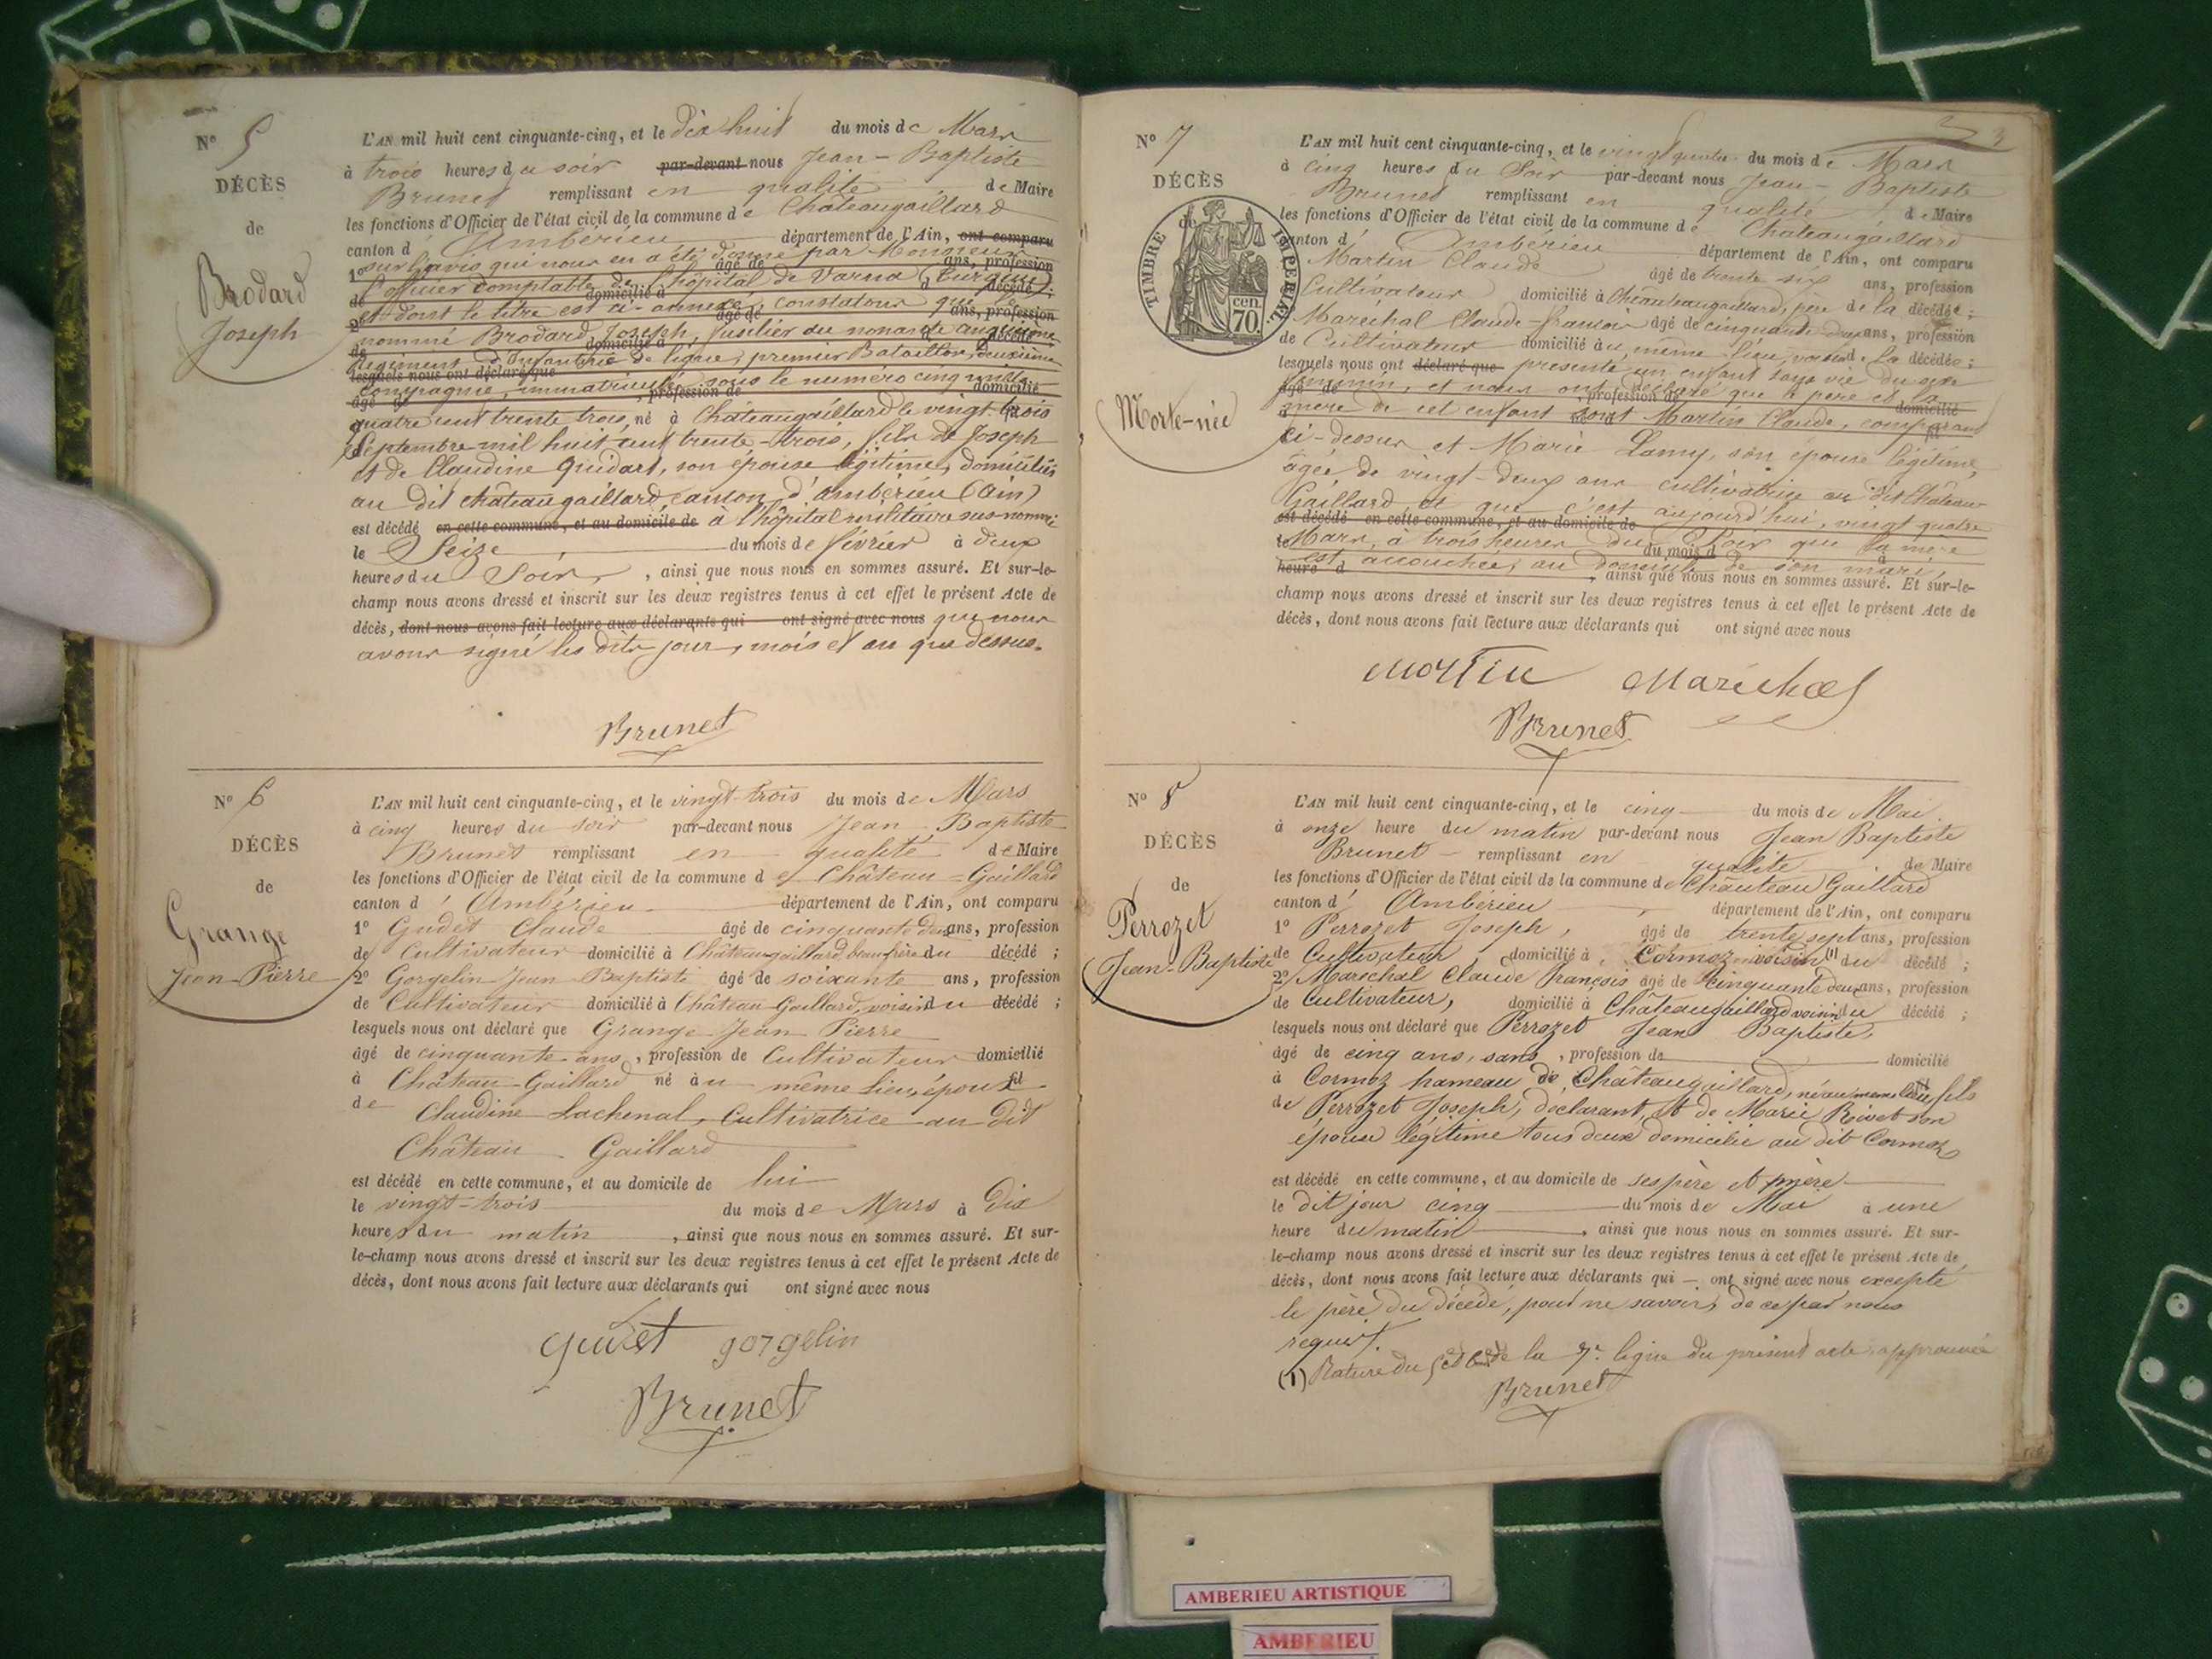 N° 5
DÉCÈS
de
Brodard
Joseph
L'AN mil huit cent cinquante-cinq, et le dix huit du mois de Mars
à trois heures du soir par-devant nous Jean-Baptiste
Brunet remplissant en qualité de Maire
les fonctions d'Officier de l'état civil de la commune de Châteaugaillard
canton d'Ambérieu département de l'Ain, ont comparu
1° sur l'avis qui nous en a été donné par Monsieur âgé de ans, profession
l'officier comptable de l'hôpital de Varna (Turquie) domicilié à décédé ;
et dont le titre est ci-annexé, constatons que le âgé de ans, profession
nommé Brodard Joseph, fusilier au domicilié à décédé
régiment d'infanterie de ligne, premier Bataillon, deuxième
lesquels nous ont déclaré que
compagnie, immatriculé sous le numéro cinq mille profession de domicilié
quatre cent trente trois, né à Châteaugaillard le vingt-trois
Septembre mil huit cent trente-trois, fils de Joseph
et de Claudine Guidart, son épouse légitime, domiciliés
au dit châteaugaillard canton d'ambérieu (Ain)
est décédé en cette commune, et au domicile de à l'hôpital militaire sus-nommé
le Seize du mois de février à deux
heures du Soir, ainsi que nous nous en sommes assuré. Et sur-le-
champ nous avons dressé et inscrit sur les deux registres tenus à cet effet le présent Acte de
décès, dont nous avons fait lecture aux déclarants qui ont signé avec nous que nous
avons signé les dits jour, mois et an que dessus.
Brunet
N° 6
DÉCÈS
de
Grange
Jean-Pierre
L'AN mil huit cent cinquante-cinq, et le vingt-trois du mois de Mars
à cinq heures du soir par-devant nous Jean Baptiste
Brunet remplissant en qualité de Maire
les fonctions d'Officier de l'état civil de la commune de Château-Gaillard
canton d'Ambérieu département de l'Ain, ont comparu
1° Gudet Claude âgé de cinquante deux ans, profession
de Cultivateur domicilié à Châteaugaillard beaufrère du décédé ;
2° Gorgelin Jean Baptiste âgé de soixante ans, profession
de Cultivateur domicilié à Château Gaillard, voisin du décédé ;
lesquels nous ont déclaré que Grange Jean Pierre
âgé de cinquante ans, profession de Cultivateur domicilié
à Château-Gaillard né au même lieu, époux fil
de Claudine Lachenal, Cultivatrice au dit
Château Gaillard
est décédé en cette commune, et au domicile de lui
le vingt-trois du mois de Mars à Dix
heures du matin, ainsi que nous nous en sommes assuré. Et sur-
le-champ nous avons dressé et inscrit sur les deux registres tenus à cet effet le présent Acte de
décès, dont nous avons fait lecture aux déclarants qui ont signé avec nous
gorgelin
Brunet
3
N° 7
DÉCÈS
de
TIMBRE IMPERIAL
70 cen.
Morte-née
L'AN mil huit cent cinquante-cinq, et le vingt quatre du mois de Mars
à cinq heures du Soir par-devant nous Jean-Baptiste
Brunet remplissant en qualité de Maire
les fonctions d'Officier de l'état civil de la commune de Châteaugaillard
canton d'Ambérieu département de l'Ain, ont comparu
Martin Claude âgé de trente six ans, profession
Cultivateur domicilié à Châteaugaillard, père de la décédée ;
Maréchal Claude-françois âgé de cinquante deux ans, profession
de Cultivateur domicilié au même lieu, voisin de la décédée ;
lesquels nous ont déclaré que présenté un enfant sans vie du sexe
féminin, et nous ont déclaré que le père et la
mère de cet enfant sont Martin Claude, comparant
ci-dessus et Marie Lamy, son épouse légitime,
âgée de vingt-deux ans cultivatrice au dit Château-
Gaillard et que c'est aujourd'hui, vingt quatre
est décédé en cette commune, et au domicile de
Mars, à trois heures du Soir que la mère
est accouchée, au domicile de son mari,
ainsi que nous nous en sommes assuré. Et sur-le-
champ nous avons dressé et inscrit sur les deux registres tenus à cet effet le présent Acte de
décès, dont nous avons fait lecture aux déclarants qui ont signé avec nous
Martin Maréchal
Brunet
N° 8
DÉCÈS
de
Perrozet
Jean-Baptiste
L'AN mil huit cent cinquante-cinq, et le cinq du mois de Mai
à onze heure du matin par-devant nous Jean Baptiste
Brunet remplissant en qualité de Maire
les fonctions d'Officier de l'état civil de la commune de Château Gaillard
canton d'Ambérieu département de l'Ain, ont comparu
1° Perrozet Joseph, âgé de trente sept ans, profession
de Cultivateur, domicilié à Cormoz voisin (1) du décédé ;
2° Maréchal Claude François âgé de cinquante deux ans, profession
de Cultivateur, domicilié à Châteaugaillard voisin du décédé ;
lesquels nous ont déclaré que Perrozet Jean Baptiste,
âgé de cinq ans, sans, profession de domicilié
à Cormoz hameau de Châteaugaillard, né au même lieu, fils
de Perrozet Joseph, déclarant, et de Marie Rivet son
épouse légitime tous deux domicilié au dit Cormoz
est décédé en cette commune, et au domicile de ses père et mère
le dit jour cinq du mois de Mai à une
heure du matin, ainsi que nous nous en sommes assuré. Et sur-
le-champ nous avons dressé et inscrit sur les deux registres tenus à cet effet le présent Acte de
décès, dont nous avons fait lecture aux déclarants qui — ont signé avec nous excepté
le père du décédé, pour ne savoir, de ce par nous
requis.
(1) Rature du de la 7e ligne du présent acte approuvée
Brunet
AMBERIEU ARTISTIQUE
AMBERIEU